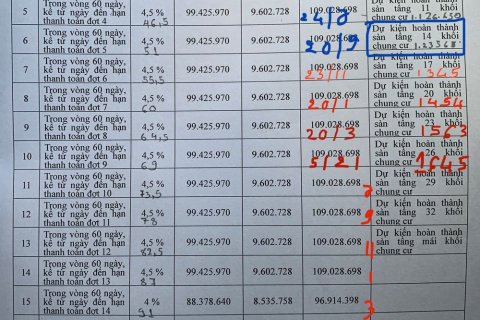 5 Trong vòng 60 ngày, kể từ ngày đến hạn thanh toán đợt 4 4,5 % 46,5 99.425.970 9.602.728 109.028.698 24/8 Dự kiến hoàn thành sàn tầng 11 khối chung cư
6 Trong vòng 60 ngày, kể từ ngày đến hạn thanh toán đợt 5 4,5 % 51 99.425.970 9.602.728 109.028.698 20/9 Dự kiến hoàn thành sàn tầng 14 khối chung cư
7 Trong vòng 60 ngày, kể từ ngày đến hạn thanh toán đợt 6 4,5 % 55,5 99.425.970 9.602.728 109.028.698 23/11 Dự kiến hoàn thành sàn tầng 17 khối chung cư 1345
8 Trong vòng 60 ngày, kể từ ngày đến hạn thanh toán đợt 7 4,5 % 60 99.425.970 9.602.728 109.028.698 20/1 Dự kiến hoàn thành sàn tầng 20 khối chung cư 1454
9 Trong vòng 60 ngày, kể từ ngày đến hạn thanh toán đợt 8 4,5 % 64,5 99.425.970 9.602.728 109.028.698 20/3 Dự kiến hoàn thành sàn tầng 23 khối chung cư 1563
10 Trong vòng 60 ngày, kể từ ngày đến hạn thanh toán đợt 9 4,5 % 69 99.425.970 9.602.728 109.028.698 5/21 Dự kiến hoàn thành sàn tầng 26 khối chung cư 1645
11 Trong vòng 60 ngày, kể từ ngày đến hạn thanh toán đợt 10 4,5 % 73,5 99.425.970 9.602.728 109.028.698 7 Dự kiến hoàn thành sàn tầng 29 khối chung cư
12 Trong vòng 60 ngày, kể từ ngày đến hạn thanh toán đợt 11 4,5 % 78 99.425.970 9.602.728 109.028.698 9 Dự kiến hoàn thành sàn tầng 32 khối chung cư
13 Trong vòng 60 ngày, kể từ ngày đến hạn thanh toán đợt 12 4,5 % 82,5 99.425.970 9.602.728 109.028.698 11 Dự kiến hoàn thành sàn tầng mái khối chung cư
14 Trong vòng 60 ngày, kể từ ngày đến hạn thanh toán đợt 13 4,5 % 87 99.425.970 9.602.728 109.028.698 1
15 Trong vòng 60 ngày, kể từ ngày đến hạn thanh toán đợt 14 4 % 91 88.378.640 8.535.758 96.914.398 3